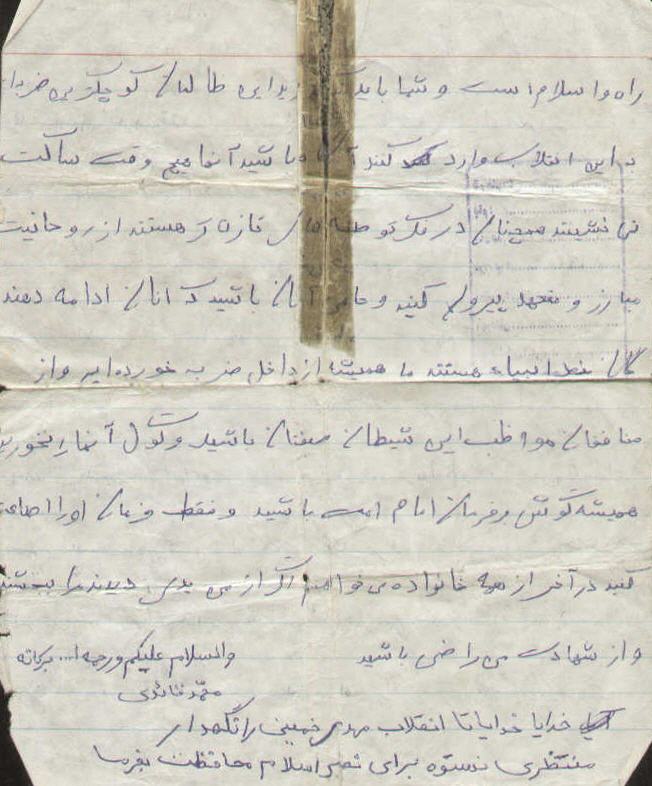 راه و اسلام است و شما باید نگذارید این ظالمان کوچکترین ضربه‌ای
به این انقلاب وارد کنند آگاه باشید آنها هیچ وقت ساکت
نمی نشینند همچنان در فکر توطئه های تازه تر هستند از روحانیت
مبارز و متعهد پیروی کنید و حامی آنان باشید که آنان ادامه دهند
گان خط انبیاء هستند ما همیشه از داخل ضربه خورده‌ایم و از
منافقان مواظب این شیطان صفتان باشید و گول آنها را نخورید
همیشه گوش بفرمان امام امت باشید و فقط فرمان او را اطاعت
کنید در آخر از همه خانواده می خواهم اگر از من بدی دیدند مرا ببخشند
و از شهادت من راضی باشید
والسلام علیکم و رحمه ا... برکاته
محمد
خدایا خدایا تا انقلاب مهدی خمینی را نگهدار
منتظری نستوه برای نصر اسلام محافظت بفرما